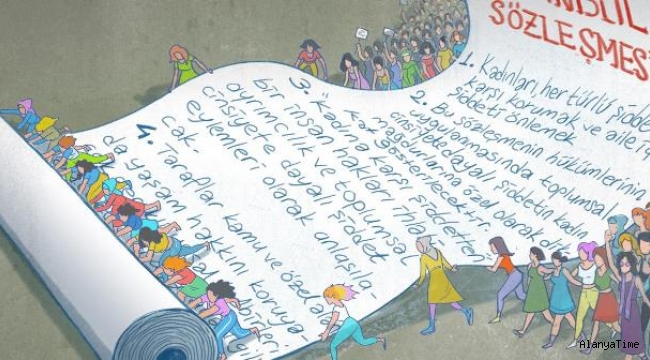 SÖZLEŞMES
1. Kadınları, her türlü şidde
karşı korumak ve aile i
şiddeti önlemek
2. Bu sözleşmenin hükümlerinin
uygulanmasında toplumsal
cinsiyete dayalı şiddetin kadın
mağdurlarının özel olarak di
kat gösterilecektir.
3. "Kadına karşı şiddet
bir insan hakları ihla
ayrımcılık ve toplumsal
cinsiyete dayalı şiddet
eylemleri olarak anlaşıla-
cak
4. Taraflar kamu ve özel a
da yaşam hakkını koruya
AlanyaTime